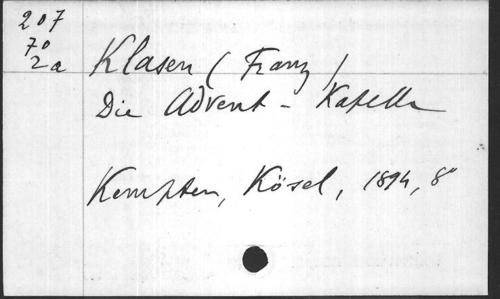 207
70
2a
Klasen (Franz)
Die Advent-Kapelle
Kempten, Kösel, 1894, 8°